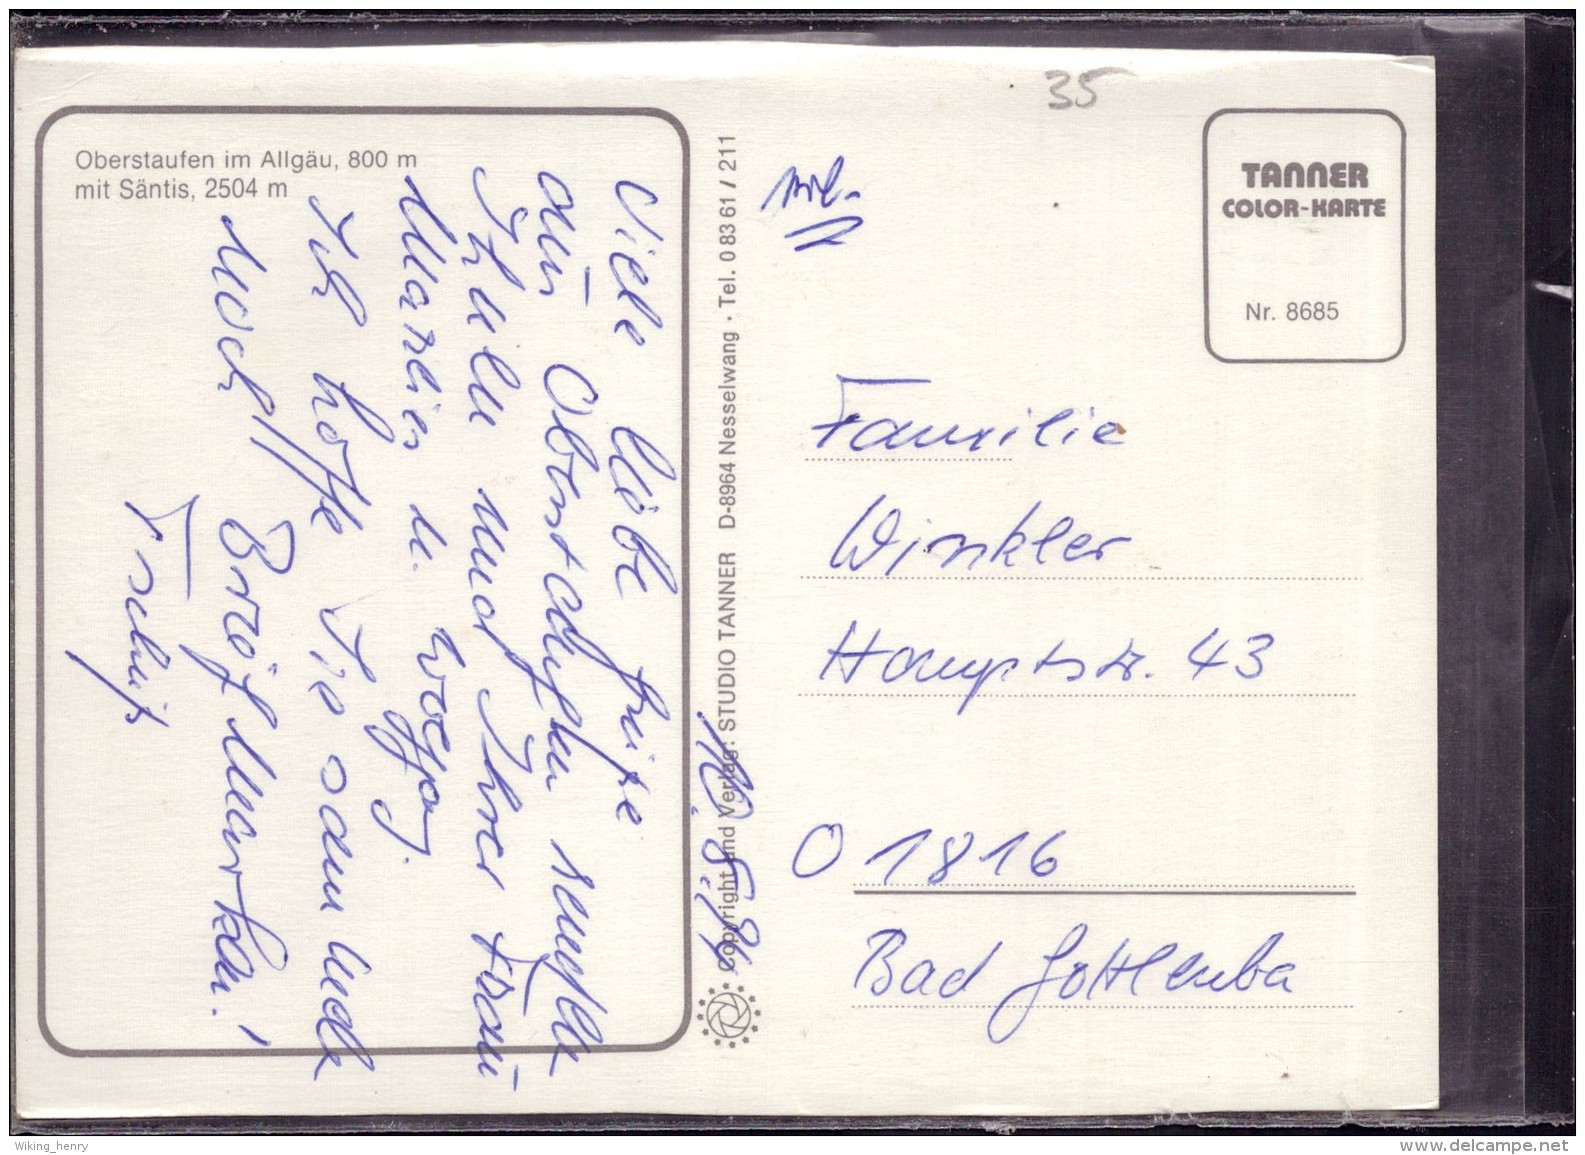 Oberstaufen im Allgäu, 800 m
mit Säntis, 2504 m
Viele liebe Grüße
aus Oberstaufen senden
Ihnen und Ihrer Frau
u. Wolfg.
Ich hoffe Sie sammeln
noch Briefmarken!
10.5.91
Copyright und Verlag: STUDIO TANNER D-8964 Nesselwang · Tel. 0 83 61 / 211
35
TANNER
COLOR-KARTE
Nr. 8685
Familie
Winkler
Hauptstr. 43
O 1816
Bad Gottleuba
Wiking_henry
www.delcampe.net